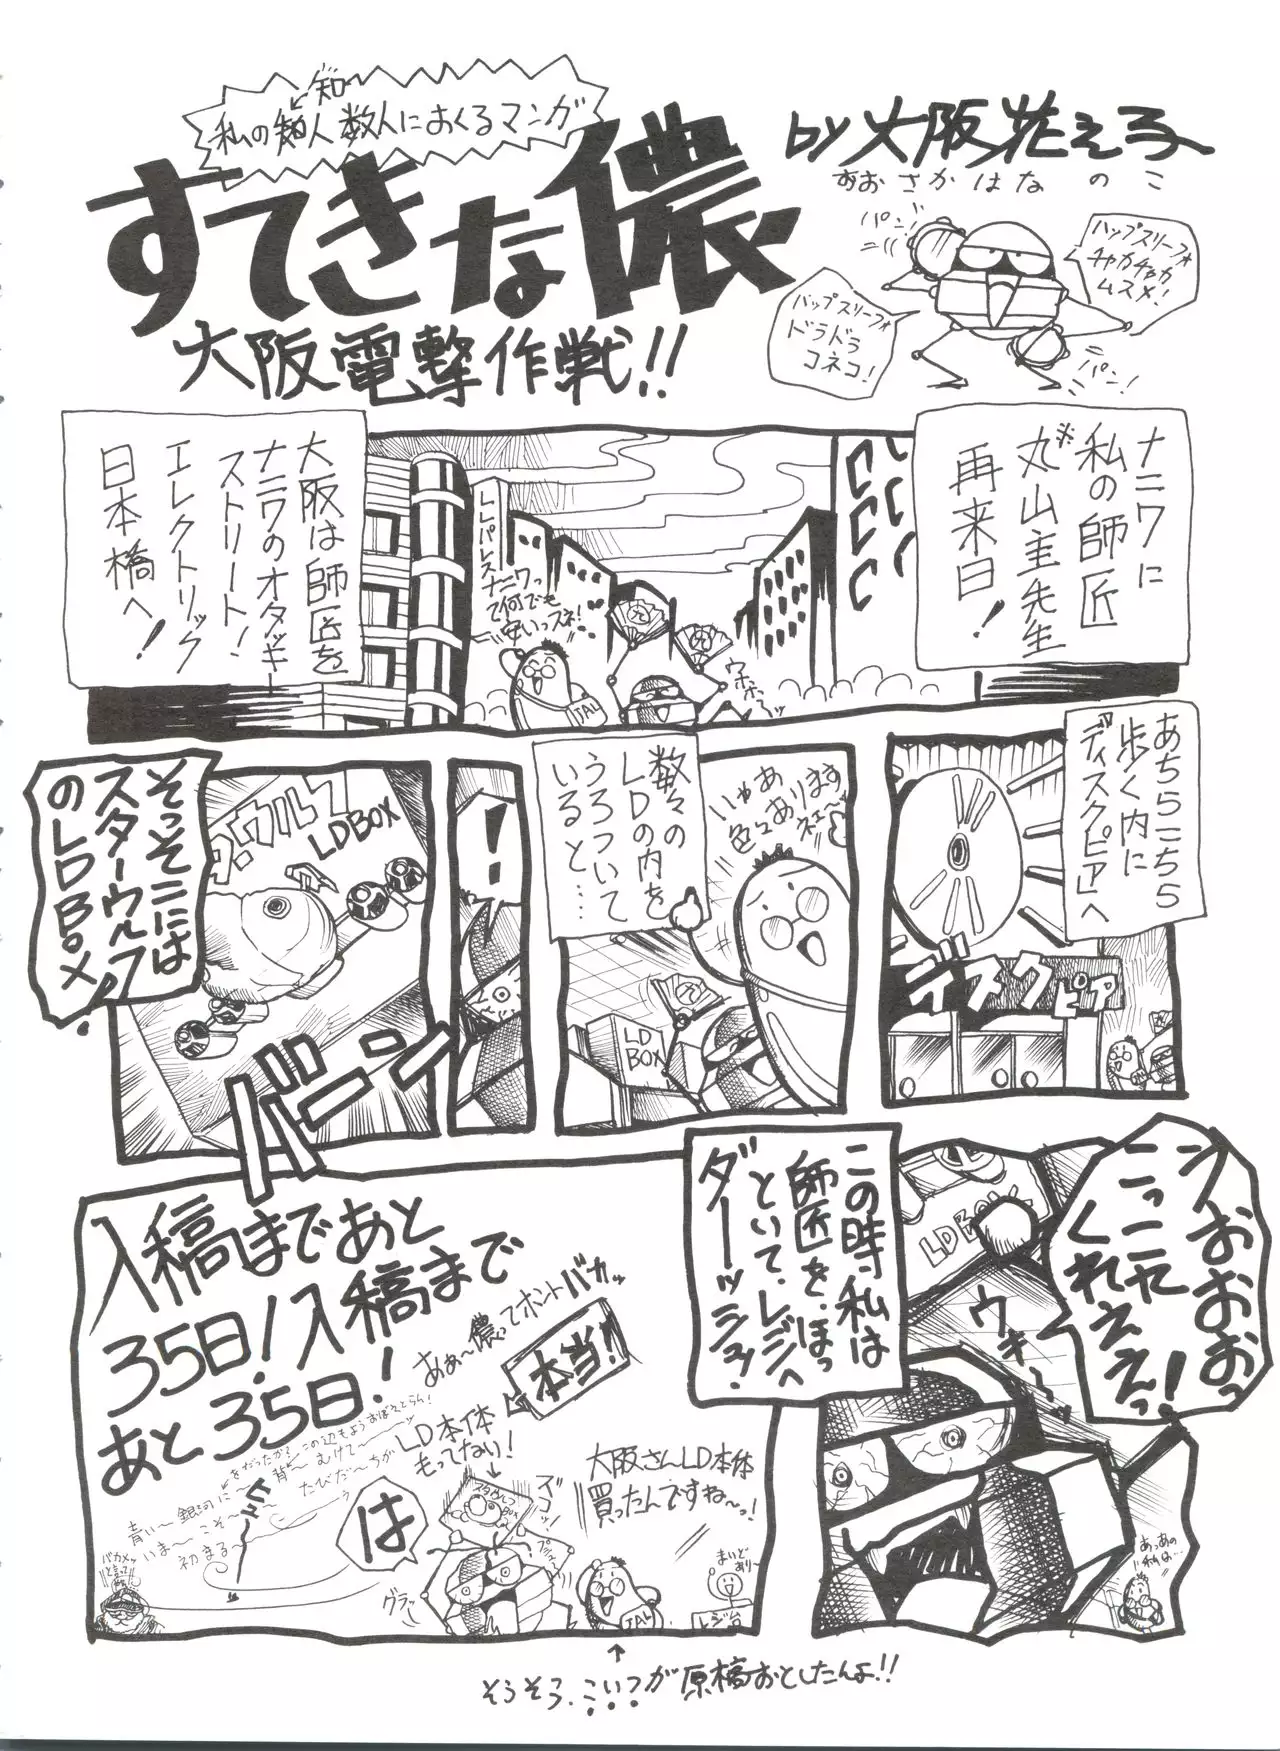 知
私の知人数人におくるマンガ
すてきな儂
大阪電撃作戦!!
by大阪花え子
おおさかはなのこ
パン
ハップスリーフォ
チャカチャカ
ムスメ!
バップスリーフォ
ドラドラ
コネコ!
パン!
ナニワに
私の師匠
※丸山圭先生
再来日!
大阪は師匠を
ナニワのオタッキー
ストリート!
エレクトリック
日本橋へ!
LLパレス
ナニワっ
て何でも
安いっスネ!
九
九
ウホホーッ
JAL
あちらこちら
歩く内に
ディスクピアへ
ディスクピア
いやああります
色々あります
ネェ〜
数々の
LDの内を
うろついて
いると…
九
LD
BOX
!
LDBOX
そっそこには
スターウルフ
のLDBOX!
バーン
うおおおおっ
こっこれ
くれええっ!
LDBOX
ウキーッ
あっあの
私は…
この時私は
師匠を、ほっ
といて、レジへ
ダーッシュ!
入稿まであと
35日!入稿まで
あと35日!
あぁ〜儂ってホントバカッ
本当!!
LD本体
もってない!
は
グラッ
大阪さんLD本体
買ったんですね〜っ!
まいど
あり〜
レジ台
JAL
青い〜銀河に〜
いま〜こそ〜
初まる〜
たびだ〜ちが
バカメッ
と言って
↑
そうそう、こいつが原稿おとしたんよ!!